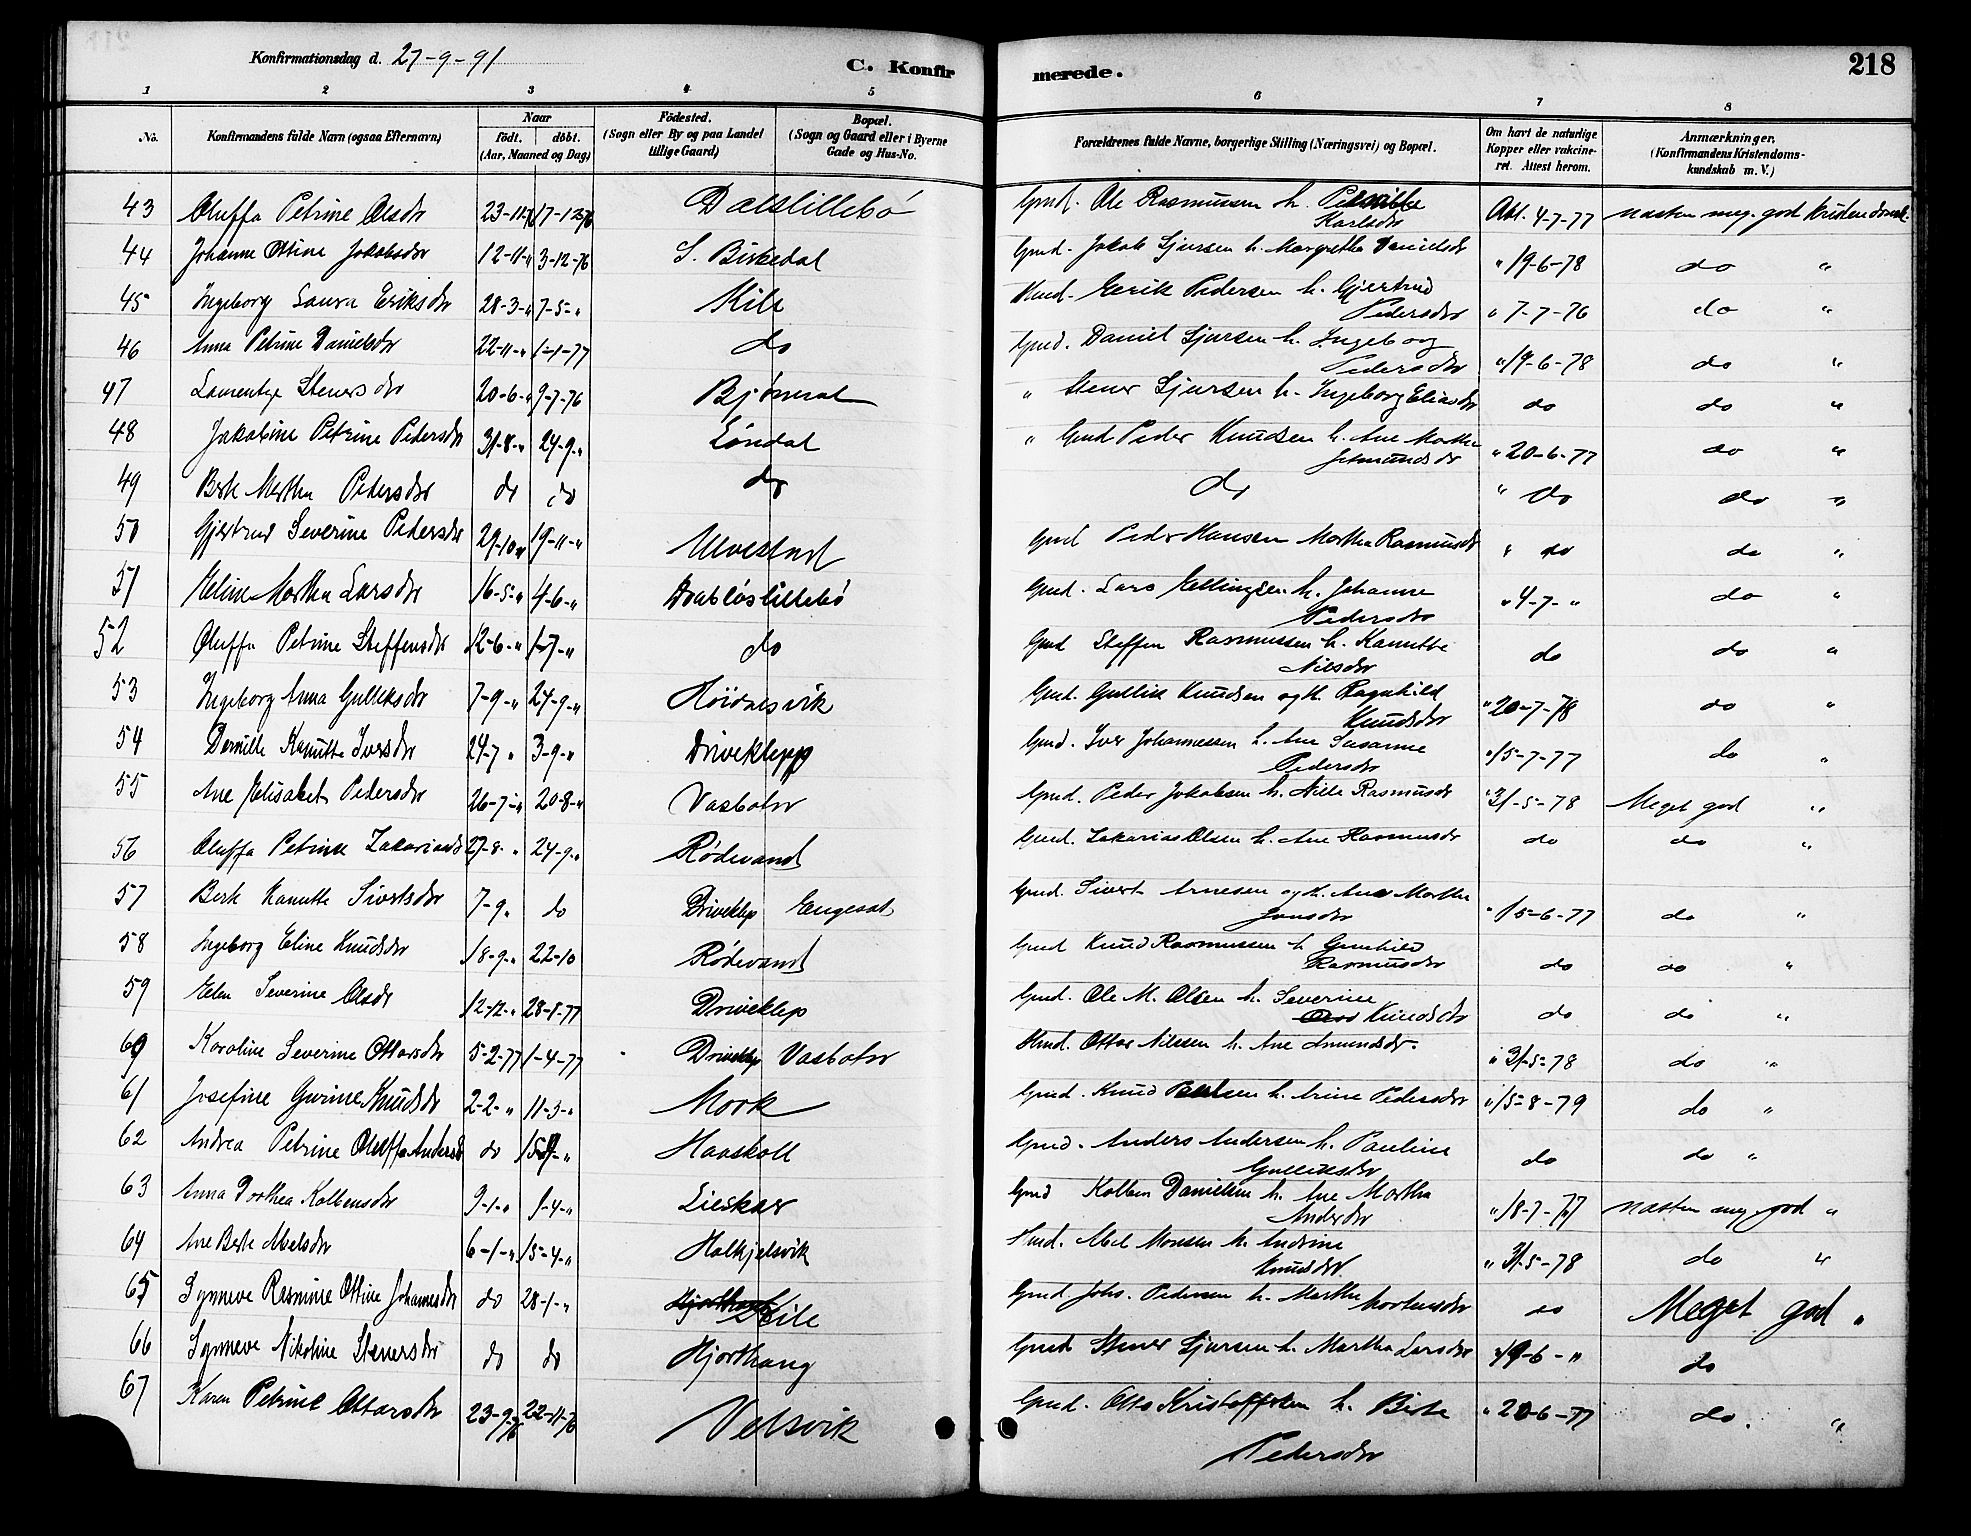 Konfirmationsdag d. 27-9-91 C. Konfirmerede. 218
1 2 3 4 5 6 7 8
No. Konfirmandens fulde Navn (ogsaa Efternavn) Naar födt. döbt. (Aar, Maaned og Dag) Födested. (Sogn eller By og paa Landet tillige Gaard) Bopæl. (Sogn og Gaard eller i Byerne Gade og Hus-No. Forældrenes fulde Navne, borgerlige Stilling (Næringsvei) og Bopæl. Om havt de naturlige Kopper eller vakcineret. Attest herom. Anmærkninger. (Konfirmandens Kristendomskundskab m. V.)
43 Oluffa Petrine Olsdr 23-11-76 17-12-76 Dalslillebö Gmd. Ole Rasmussen h. Pernille Karlsdr Att. 4-7-77 næsten meg. god Kristendomsk.
44 Johanne Ottine Jakobsdr 12-11-" 3-12-76 S. Birkedal Gmd. Jakob Sjursen h. Margrethe Danielsdr " 19-6-78 do "
45 Ingeborg Laura Eriksdr 28-3-" 7-5-" Kile Hmd. Eerik Pedersen h. Gjertrud Pedersdr " 7-7-76 do "
46 Anna Petrine Danielsdr 22-11-" 1-1-77 do Gmd. Daniel Sjursen h. Ingeborg Pedersdr " 19-6-78 do "
47 Lamentze Stenersdr 20-6-" 9-7-76 Bjørneset " Stener Sjursen h. Ingeborg Eliasdr do do "
48 Jakobine Petrine Pedersdr 31-8-" 24-9-" Løndal " Gmd Peder Knudsen h. Ane Marthe Jetmundsdr " 20-6-77 do "
49 Berte Marthea Pedersdr do do do do " do do "
50 Gjertrud Severine Pedersdr 29-10-" 19-11-" Ulvestad Gmd Peder Hansen Martha Rasmusdr " do do "
51 Eline Martha Larsdr 16-5-" 4-6-" Drabløslillebö Gmd. Lars Ellingsen h. Johanne Pedersdr " 4-7-" do "
52 Oluffa Petrine Steffensdr 12-6-" 1-7-" do Gmd Steffen Rasmussen h. Kanutte Nilsdr do do "
53 Ingeborg Anna Gulleksdr 7-9-" 24-9-" Höidalsvik Gmd. Gullik Knudsen og h. Ragnhild Knudsdr " 20-7-78 do "
54 Pernille Kanutte Iversdr 24-7 " 3-9-" Driveklepp Gmd. Iver Johannessen h. Ane Susanne Pedersdr " 15-7-77 do "
55 Ane Elisabet Pedersdr 26-7-" 20-8-" Vasbotn Gmd. Peder Jakobsen h. Nille Rasmusdr " 31-5-78 Meget god "
56 Oluffa Petrine Zakariasd 27-8-" 24-9-" Rödevand Gmd. Zakarias Olsen h. Ane Rasmusdr do do "
57 Berte Kanutte Sivertsdr 7-9" do Driveklep Engeset Gmd. Sivert Arnesen og h. Ane Marthe Jonsdr " 15-6-77 do "
58 Ingeborg Eline Knudsdr 18-9-" 22-10 Rödevand Gmd Knud Rasmussen h. Gunhild Rasmusdr do do "
59 Elen Severine Olsdr 12-12-" 28-1-77 Driveklep Gmd. Ole M. Olsen h. Severine Knudsdr do do "
60 Karoline Severine Ottarsdr 5-2-77 1-4-77 Driveklep Vasbotn Hmd. Ottar Nilssen h. Ane Amundsdr. " 31-5-78 do "
61 Josefine Gurine Knudsdr 2-2-" 11-3-" Mork Gmd. Knud Paulsen h. Anne Pedersdr " 15-8-79 do "
62 Andrea Petrine Oluffa Andersd do 15-4-" Haaskoll Gmd. Anders Andersen h. Pauline Gulliksdr do do "
63 Anna Dorthea Kolbensdr 9-1-" 1-4-" Lieskar Gmd Kolben Danielsen h. Ane Martha Andersdr " 18-7-77 næsten meg. god "
64 Ane Berte Abelsdr 6-1-" 15-4-" Halkjelsvik Hmd. Abel Monsen h. Andrine Knudsdr. " 31-5-78 do "
65 Synneve Rasmine Ottine Johannesdr do 28-1-" Hjorthaug Kile Gmd Johs. Pedersen h. Marthe Mortensdr do Meget god "
66 Synneve Nikoline Stenersdr do do Hjorthaug Gmd Stener Sjursen h. Martha Larsdr " 19-6-" do
67 Karen Petrine Ottarsdr 23-9-76 22-11-76 Velsvik Gmd. Otto Kristoffersen h. Birte Pedersdr " 20-6-77 do. "